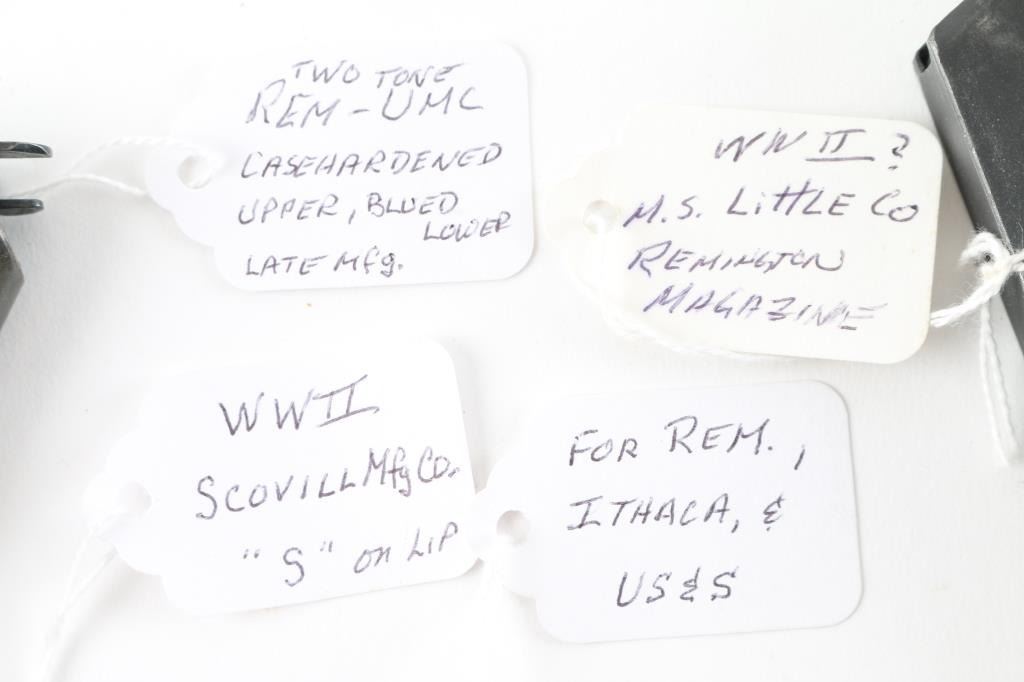 TWO TONE
REM-UMC
CASEHARDENED
UPPER, BLUED
LOWER
LATE Mfg.
WW II ?
M.S. LiTTLE Co
REMINGTON
MAGAZINE
WW II
SCOVILL Mfg Co.
"S" on LiP
FOR REM.,
ITHACA, &
US&S